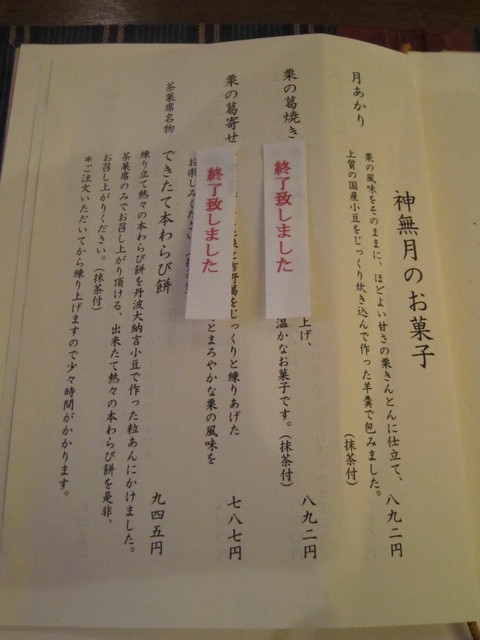 神無月のお菓子
月あかり
栗の風味をそのままに、ほどよい甘さの栗きんとんに仕立て、八九二円
上質の国産小豆をじっくり炊き込んで作った羊羹で包みました。
(抹茶付)
栗の葛焼き
終了致しました
上げ、
温かなお菓子です。(抹茶付)
八九二円
栗の葛寄せ
終了致しました
吉野葛をじっくりと練りあげた
とまろやかな栗の風味を
お楽しみください。(抹茶付)
七八七円
茶菓席名物
できたて本わらび餅
練り立て熱々の本わらび餅を丹波大納言小豆で作った粒あんにかけました。
茶菓席のみでお召し上がり頂ける、出来たて熱々の本わらび餅を是非、
お召し上がりください。(抹茶付)
九四五円
*ご注文いただいてから練り上げますので少々時間がかかります。